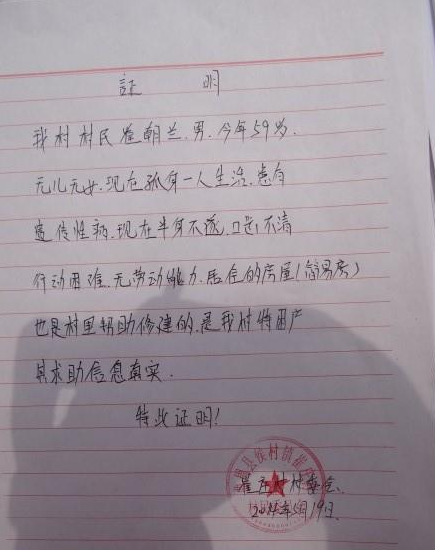 证 明
我村村民崔朝兰、男、今年59岁、
无儿无女、现在孤身一人生活、患有
遗传性病、现在半身不遂、口齿不清
行动困难、无劳动能力、居住的房屋(简易房)
也是村里帮助修建的、是我村特困户
其求助信息真实.
特此证明!
崔庄村村委会、
5月19日.